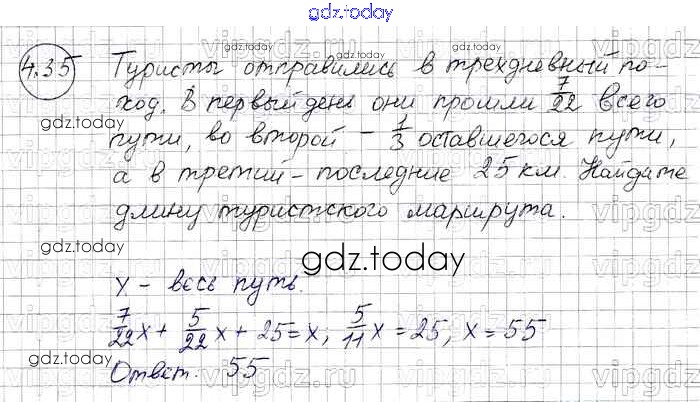 gdz.today
4.35 Туристы отправились в трехдневный по-
ход. В первый день они прошли 7/22 всего
пути, во второй – 1/3 оставшегося пути,
а в третий – последние 25 км. Найдите
длину туристского маршрута.
gdz.today
Y – весь путь.
7/22 x + 5/22 x + 25 = x; 5/11 x = 25, x = 55
Ответ: 55